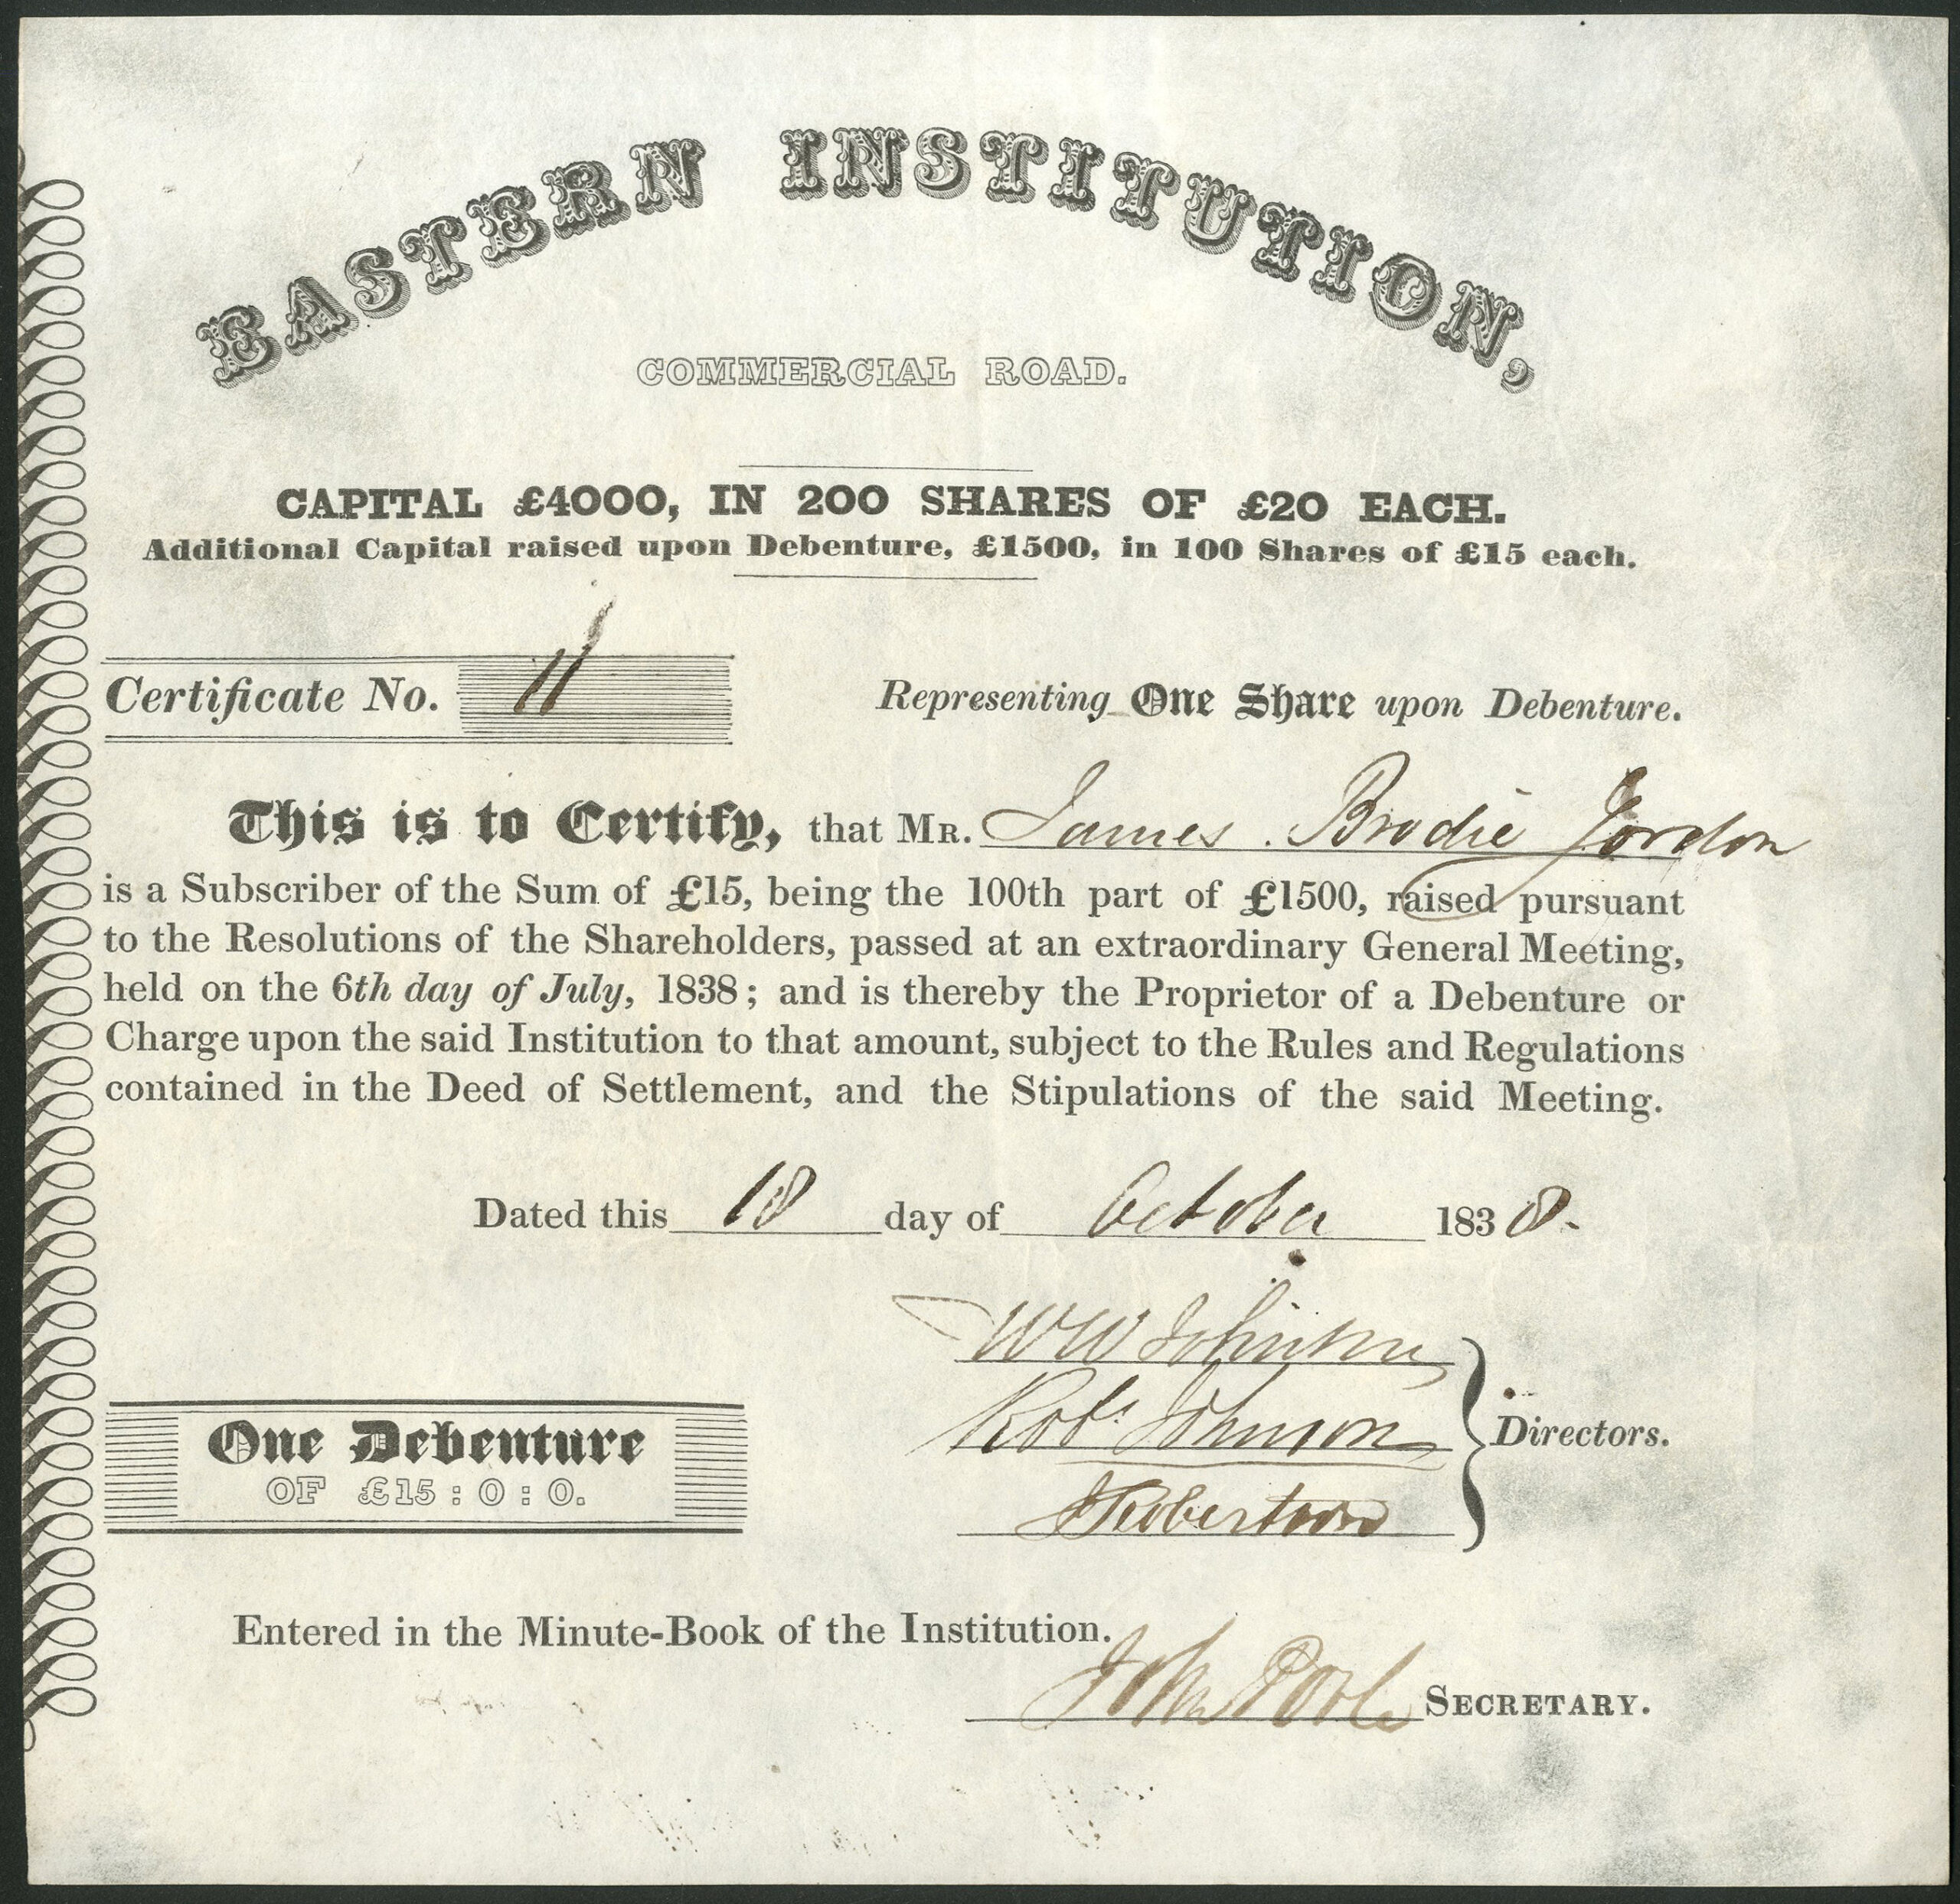 EASTERN INSTITUTION,
COMMERCIAL ROAD.
CAPITAL £4000, IN 200 SHARES OF £20 EACH.
Additional Capital raised upon Debenture, £1500, in 100 Shares of £15 each.
Certificate No. 11 Representing One Share upon Debenture.
This is to Certify, that MR. James. Brodie Gordon
is a Subscriber of the Sum of £15, being the 100th part of £1500, raised pursuant
to the Resolutions of the Shareholders, passed at an extraordinary General Meeting,
held on the 6th day of July, 1838; and is thereby the Proprietor of a Debenture or
Charge upon the said Institution to that amount, subject to the Rules and Regulations
contained in the Deed of Settlement, and the Stipulations of the said Meeting.
Dated this 18 day of October 1838.
WW Johnson
Robt Johnson
Directors.
Robertson
One Debenture
OF £15 : 0 : 0.
Entered in the Minute-Book of the Institution.
John Poole SECRETARY.